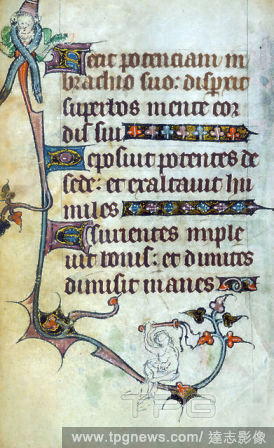 Fecit potenciam in
brachio suo: dispersit
superbos mente cor
dis sui
Deposuit potentes de
sede: et exaltauit hu
miles
Esurientes imple
uit bonis: et diuites
dimisit inanes
TPG
www.tpgnews.com/ 達志影像